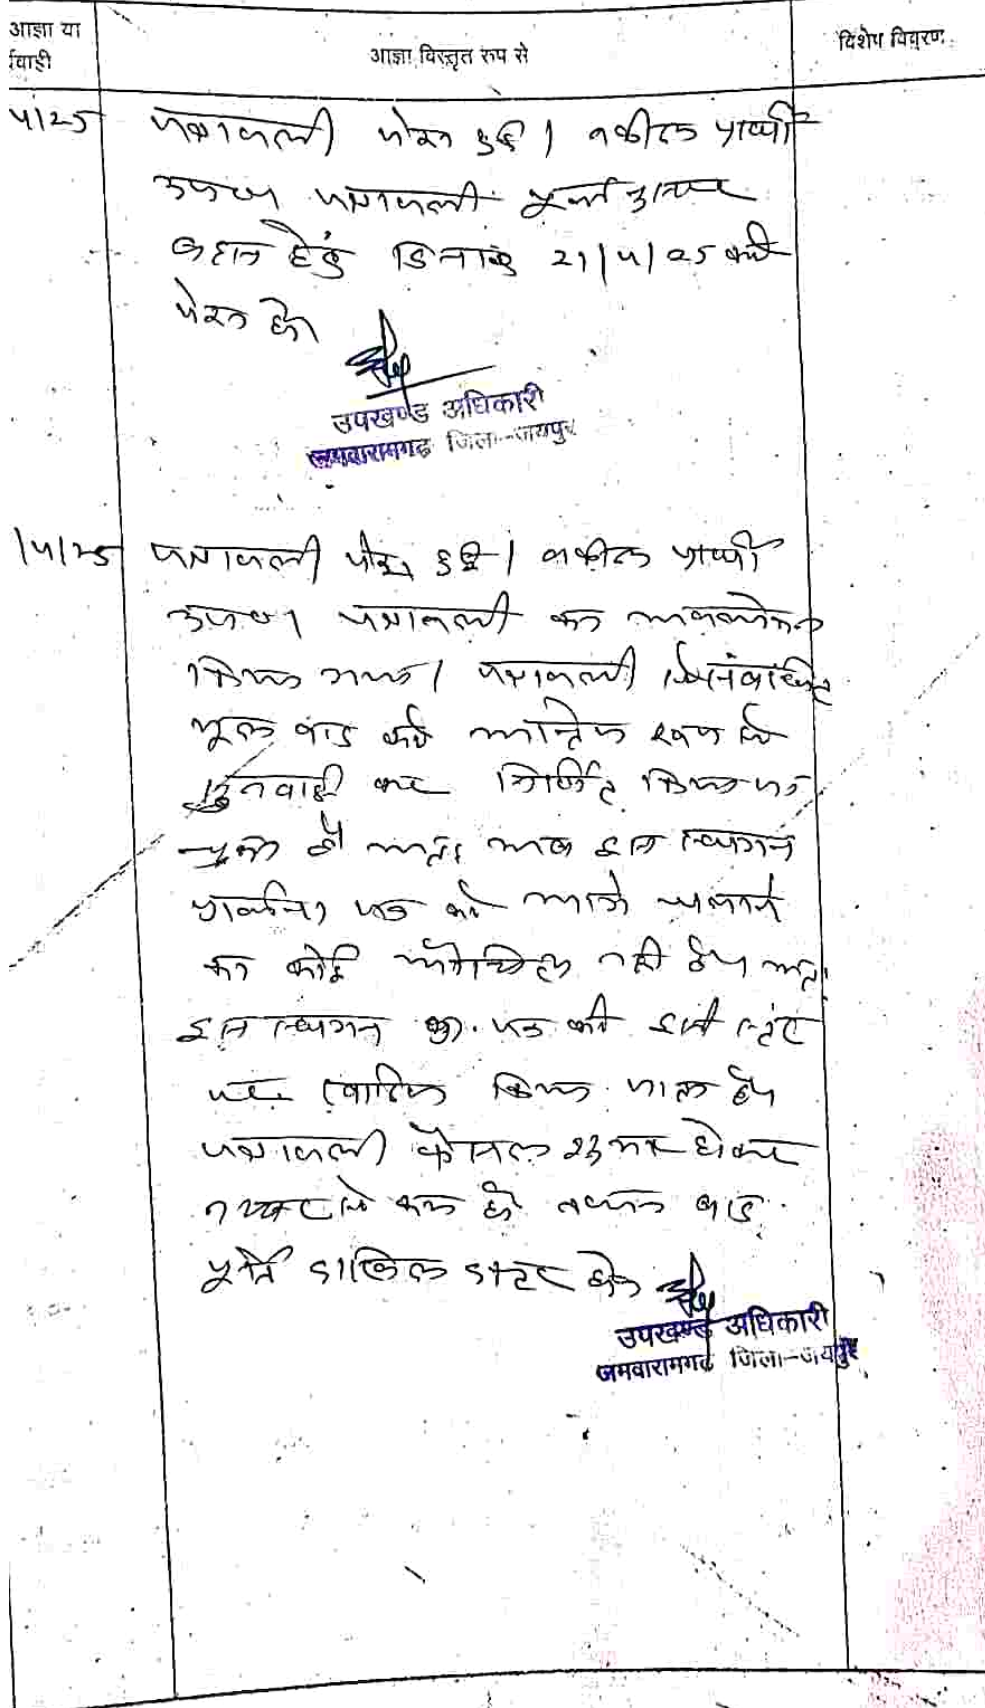 आज्ञा या
र्यवाही
आज्ञा विस्तृत रूप से
विशेष विवरण
4/25
पत्रावली पेश हुई। वकील प्रार्थी
उपस्थित पत्रावली पूर्व
बहस हेतु दिनांक 21/4/25 को
पेश हो।
उपखण्ड अधिकारी
जमवारामगढ जिला-जयपुर
/4/25
पत्रावली पेश हुई। वकील प्रार्थी
उप० पत्रावली का अवलोकन
किया गया। पत्रावली से संबंधित
मूल वाद को अन्तिम रूप से
सुनवाई कर निर्णित किया जा
चुका है अतः अब इस स्थगन
प्रार्थना पत्र को आगे चलाने
का कोई औचित्य नहीं है। अतः
इस स्थगन प्रा. पत्र को इसी स्टेज
पर खारिज किया जाता है।
पत्रावली फैसल शुमार होकर
नम्बर से कम हो बाद
पूर्ति दाखिल दफ्तर हो।
उपखण्ड अधिकारी
जमवारामगढ जिला-जयपुर